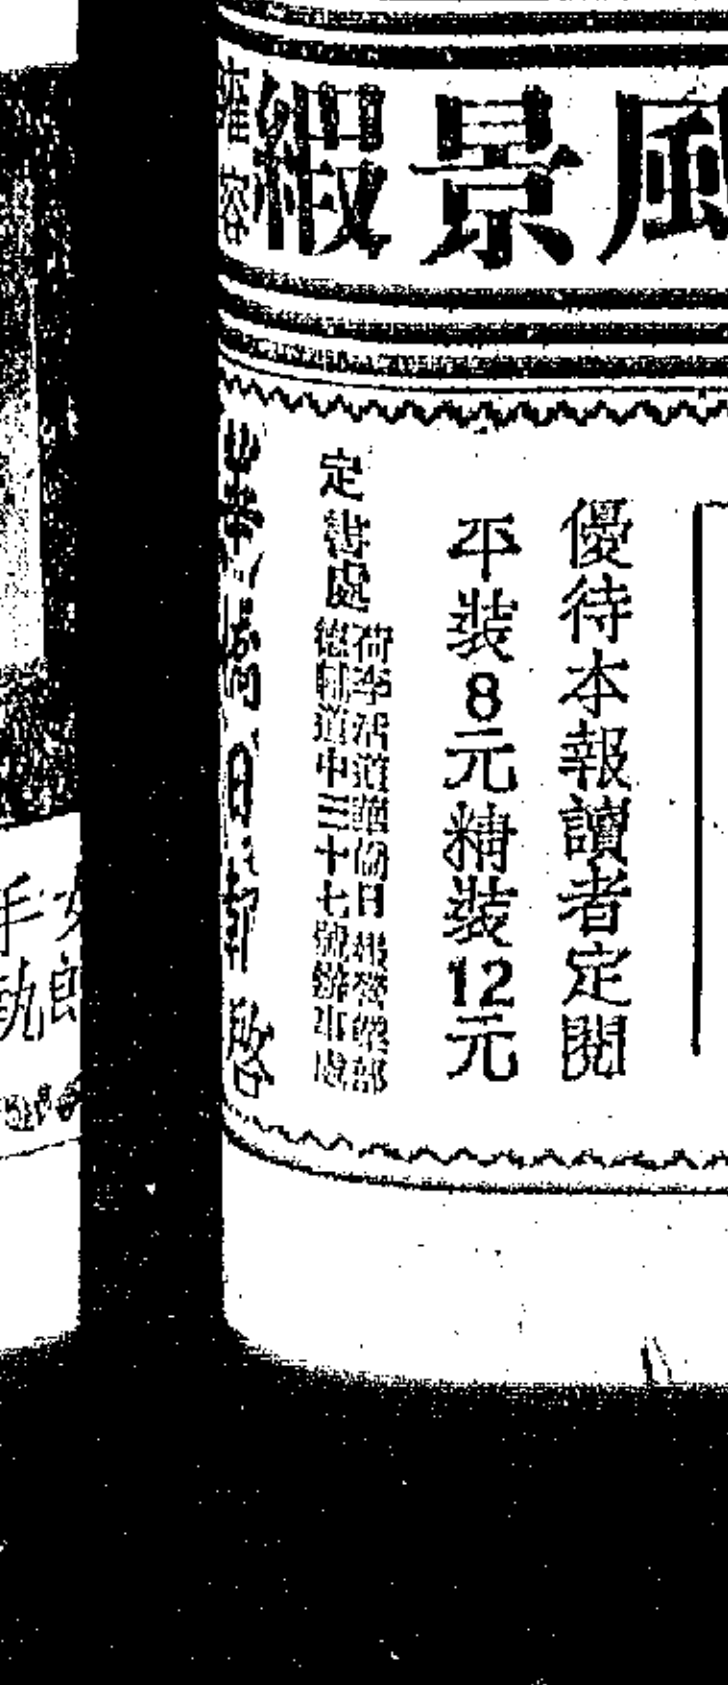 風景緞
優待本報讀者定閱
平裝8元精裝12元
定書處
荷李活道華僑日報營業部
德輔道中三十七號辦事處
華僑日報啟
女郎
手執